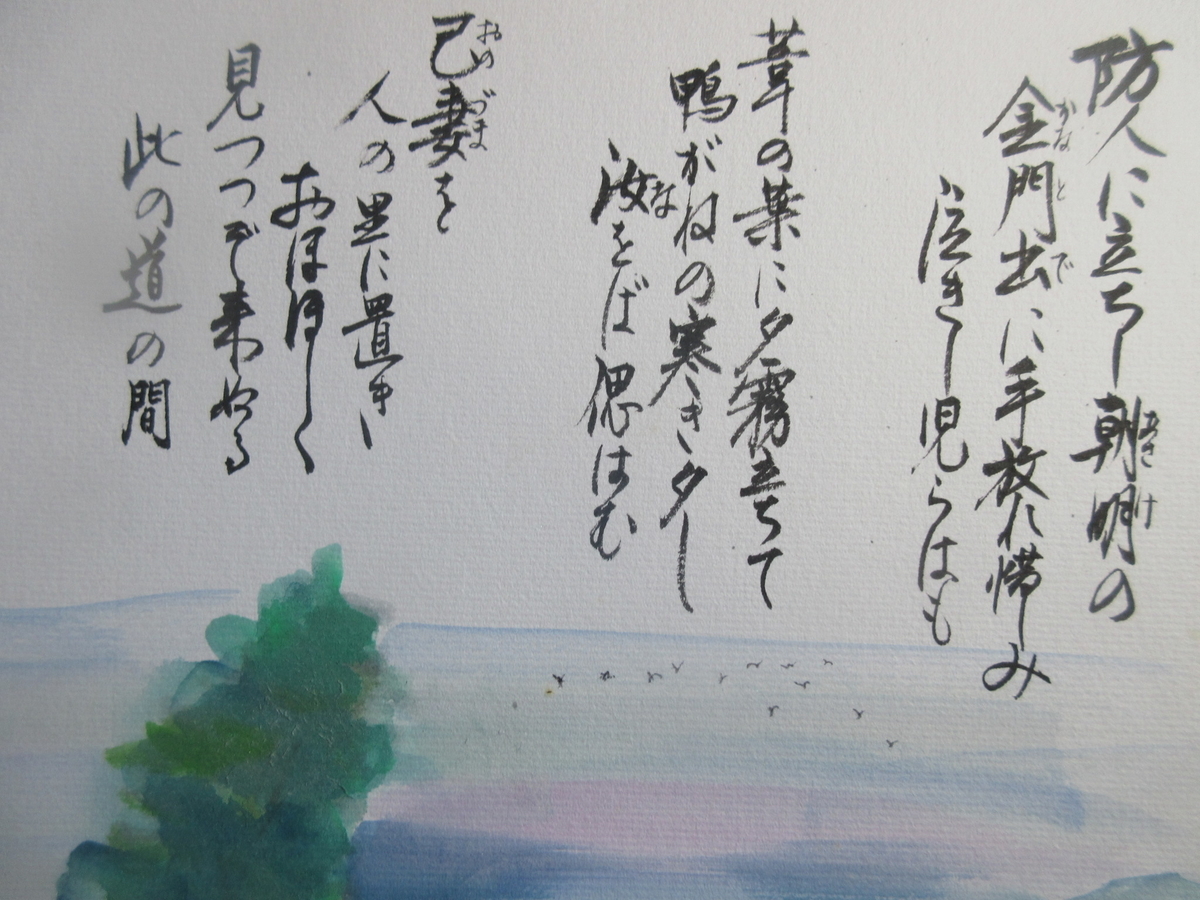 防人に立ちし朝明の
あさけ
金門出に手放れ惜しみ
かなとで
泣きし児らはも
葦の葉に夕霧立ちて
鴨がねの寒き夕し
汝をば偲はむ
な
己妻を
おのづま
人の里に置き
おほほしく
見つつぞ来ぬる
此の道の間